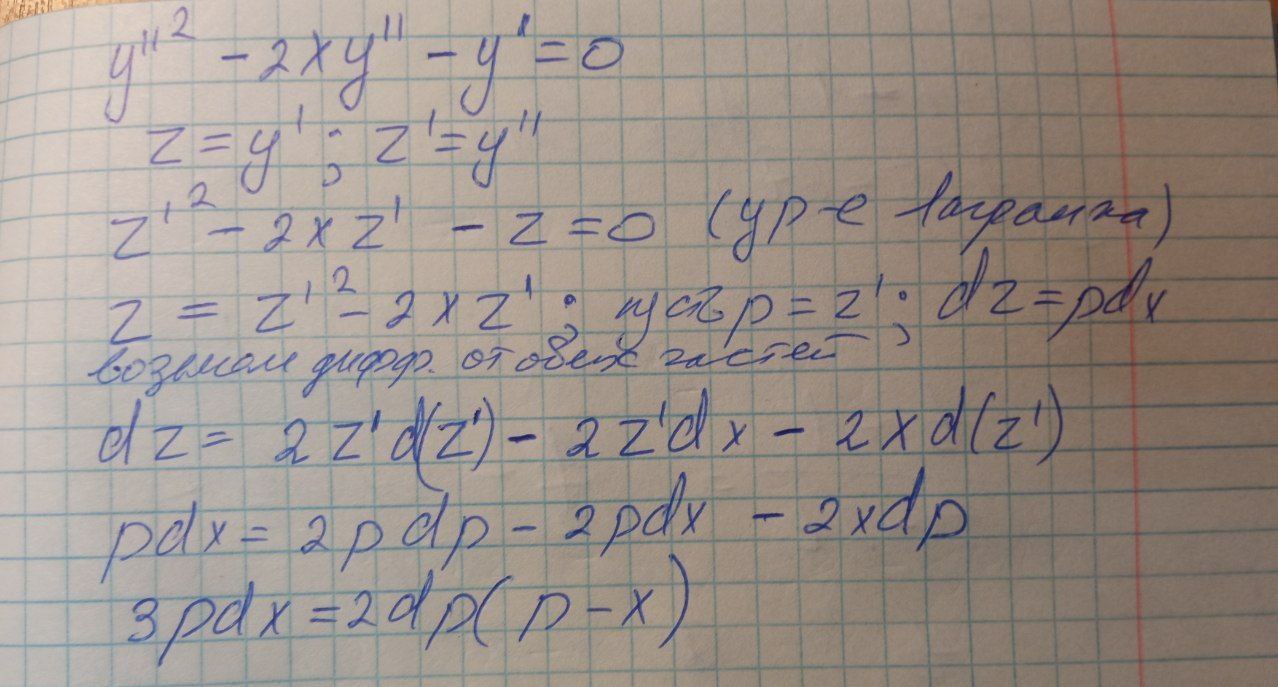 y''² - 2xy'' - y' = 0
z = y' ; z' = y''
z'² - 2xz' - z = 0 (ур-е Лагранжа)
z = z'² - 2xz' ; пусть p = z' ; dz = pdx
возьмем дифф. от обеих частей
dz = 2z'd(z') - 2z'dx - 2xd(z')
pdx = 2pdp - 2pdx - 2xdp
3pdx = 2dp(p - x)